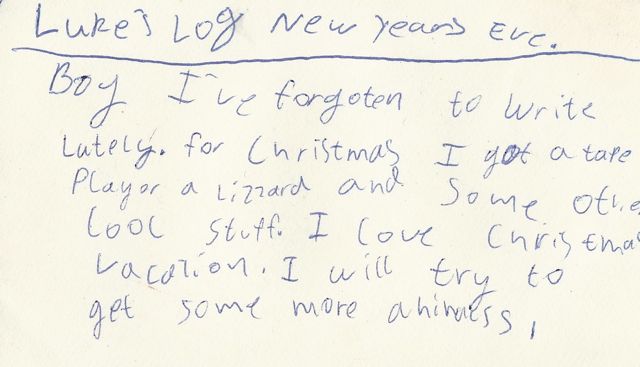 Luke's Log New years Eve.
Boy I've forgoten to write
Lately. for Christmas I got a tape
Player a Lizzard and some othe
cool stuff. I love Christmas
vacation. I will try to
get some more